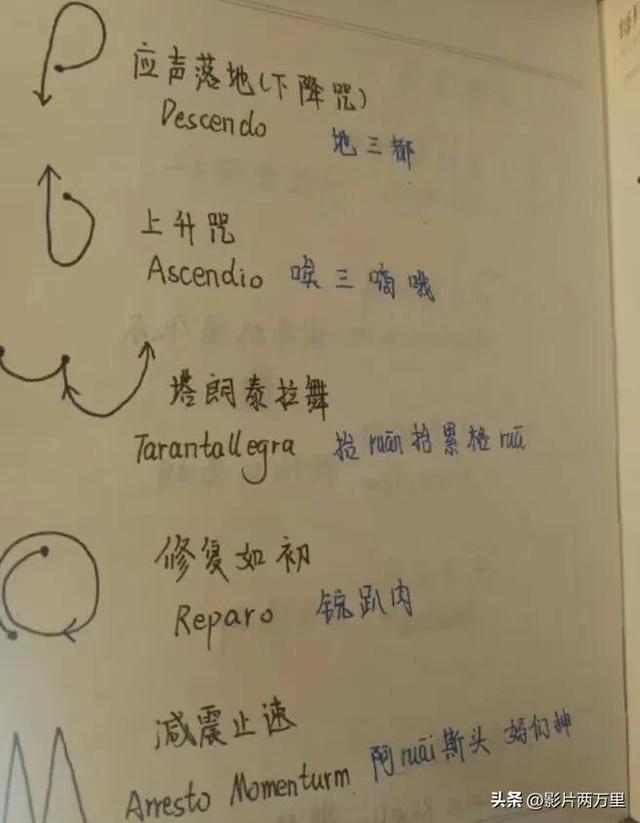 应声落地(下降咒)
Descendo 地三都
上升咒
Ascendio 唉三嘀哦
塔朗泰拉舞
Tarantallegra 抬ruān抬累格ruā
修复如初
Reparo 锐趴肉
减震止速
Arresto Momenturm 阿ruāi斯头 妈们神
头条 @影片两万里